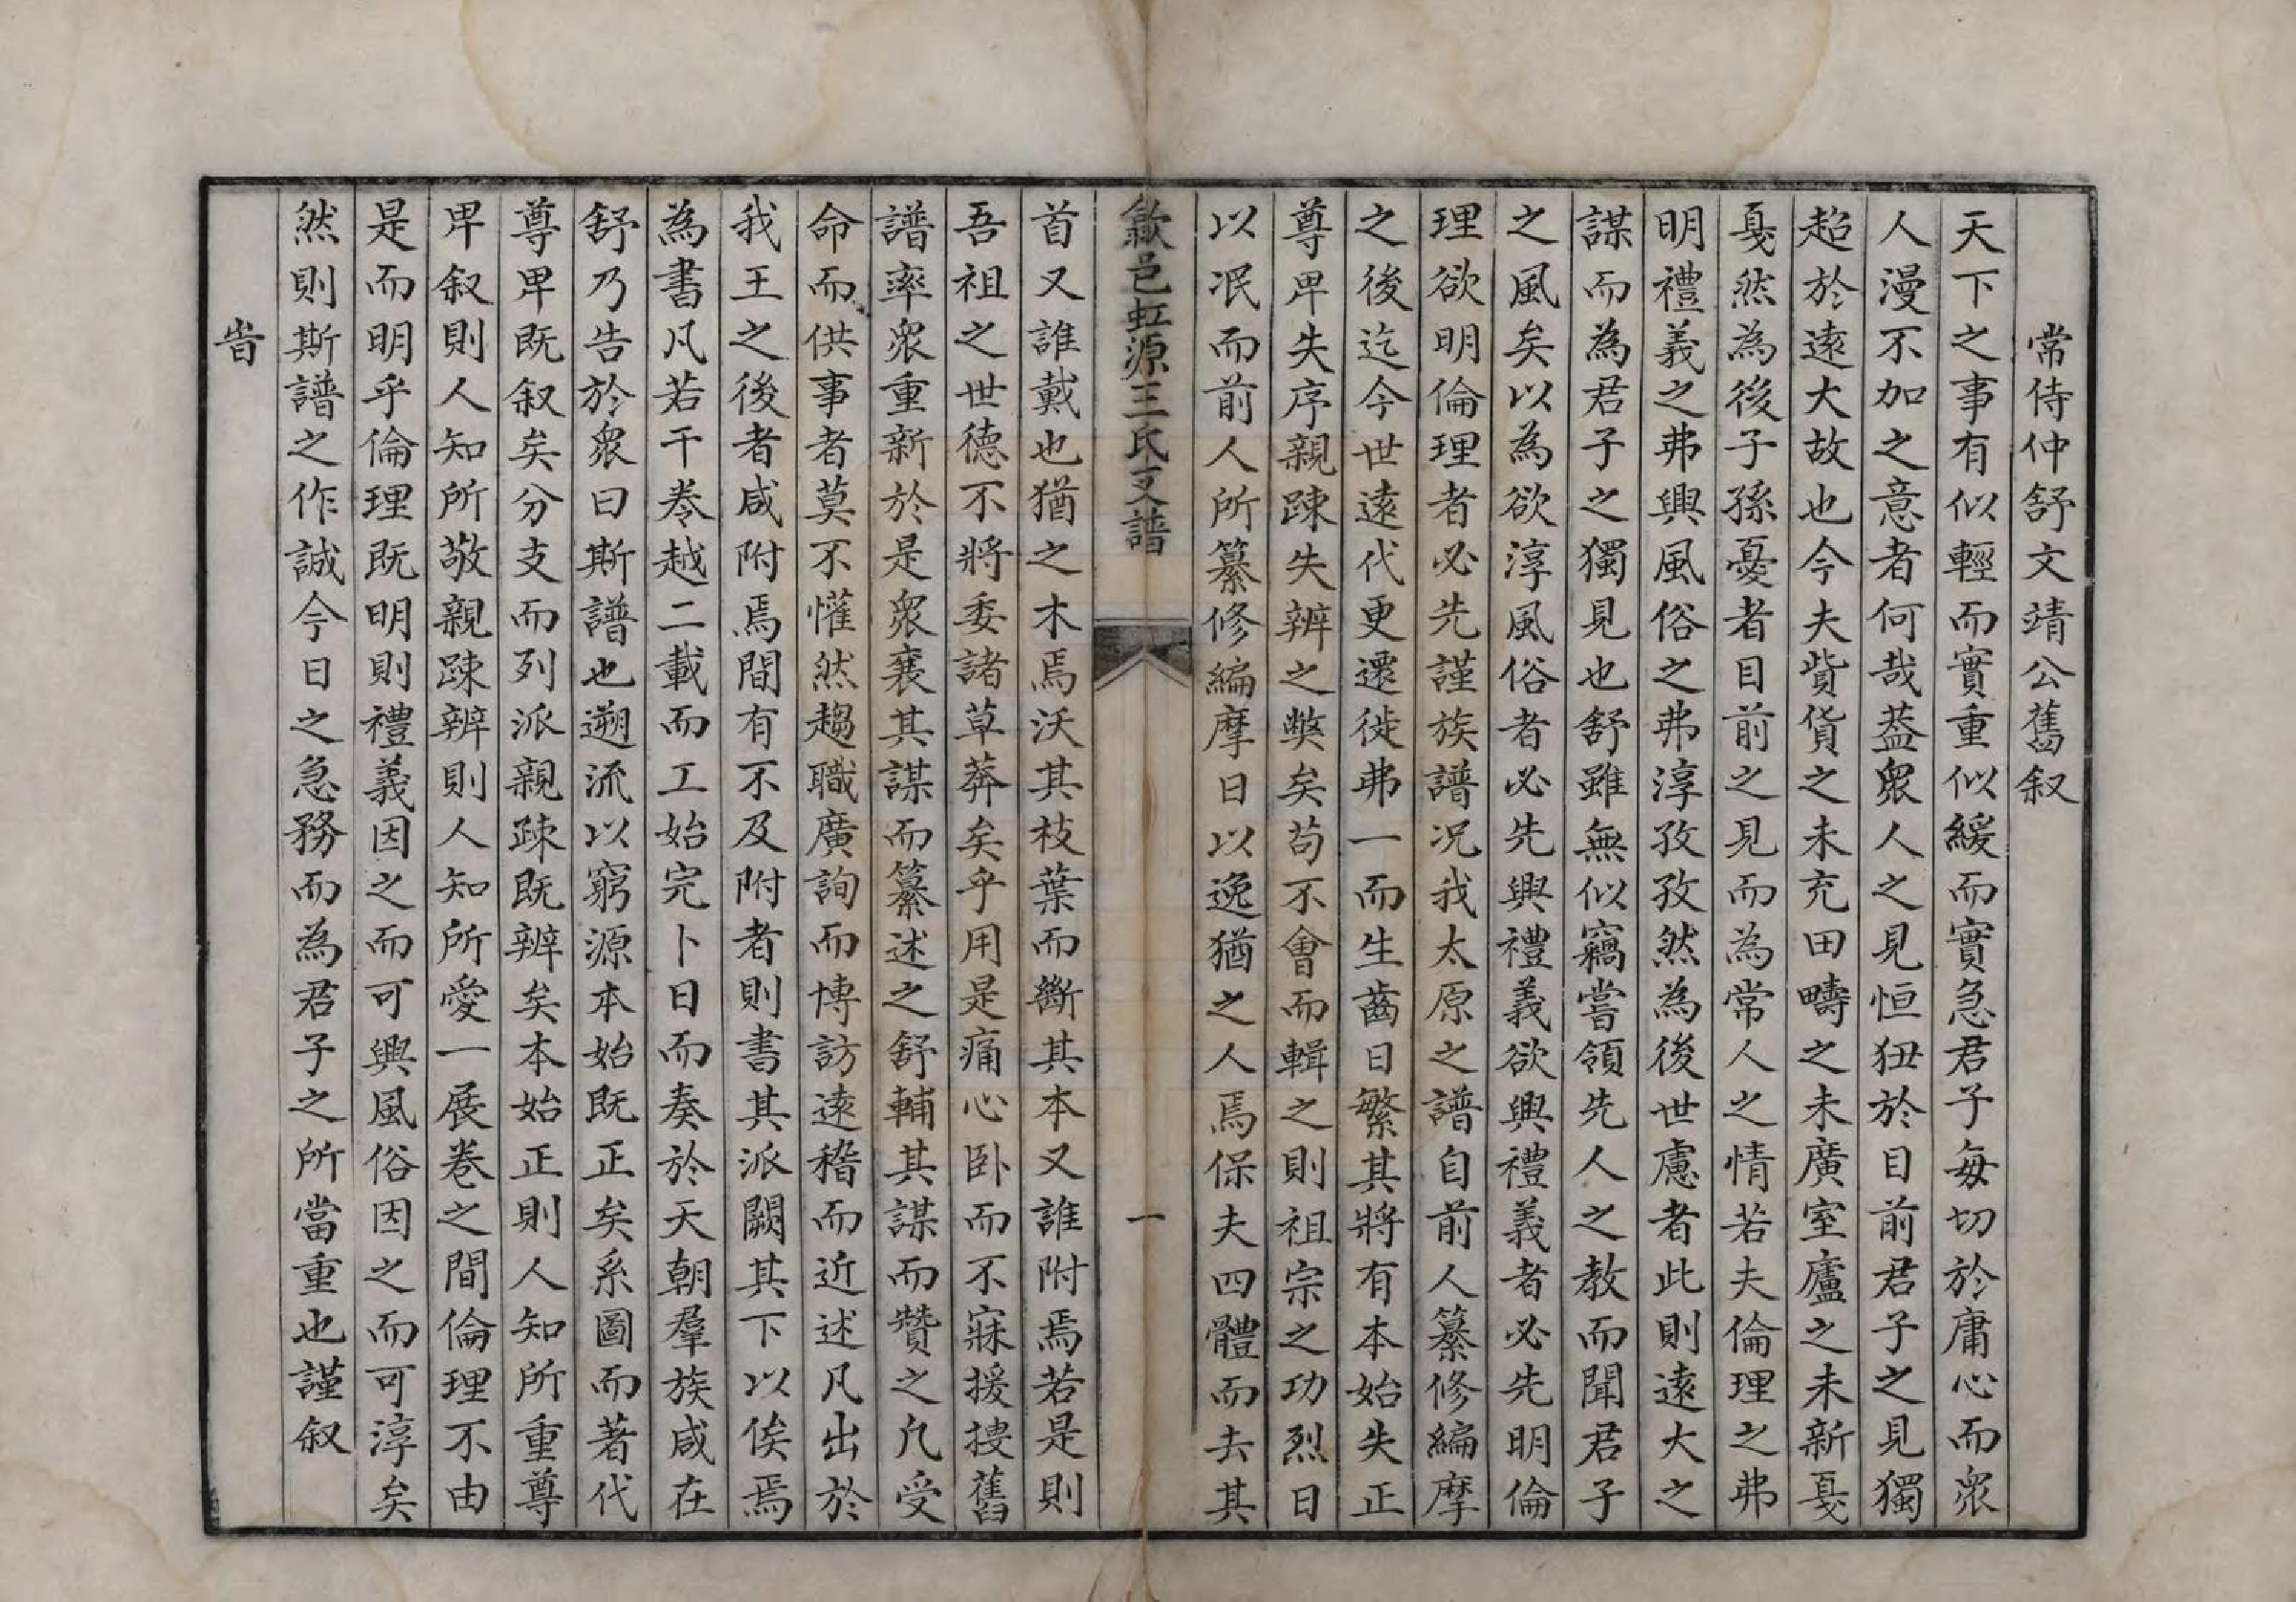 常侍仲舒文靖公舊叙
天下之事有似輕而實重似緩而實急君子每切於庸心而衆
人漫不加之意者何哉葢衆人之見恒狃於目前君子之見獨
超於遠大故也今夫貲貨之未充田疇之未廣室廬之未新戞
戞然為後子孫憂者目前之見而為常人之情若夫倫理之弗
明禮義之弗興風俗之弗淳孜孜然為後世慮者此則遠大之
謀而為君子之獨見也舒雖無似竊嘗領先人之教而聞君子
之風矣以為欲淳風俗者必先興禮義欲興禮義者必先明倫
理欲明倫理者必先謹族譜况我太原之譜自前人纂修編摩
之後迄今世遠代更遷徙弗一而生齒日繁其將有本始失正
尊卑失序親踈失辨之獘矣苟不會而輯之則祖宗之功烈日
以泯而前人所纂修編摩日以逸猶之人焉保夫四體而去其
歙邑虹源王氏支譜
一
首又誰戴也猶之木焉沃其枝葉而斷其本又誰附焉若是則
吾祖之世德不將委諸草莽矣乎用是痛心卧而不寐援摟舊
譜率衆重新於是衆襄其謀而纂述之舒輔其謀而贊之凢受
命而供事者莫不懽然趨職廣詢而博訪遠稽而近述凡出於
我王之後者咸附焉間有不及附者則書其派闕其下以俟焉
為書凡若干卷越二載而工始完卜日而奏於天朝羣族咸在
舒乃告於衆曰斯譜也遡流以窮源本始既正矣系圖而著代
尊卑既叙矣分支而列派親踈既辨矣本始正則人知所重尊
卑叙則人知所敬親踈辨則人知所愛一展卷之間倫理不由
是而明乎倫理既明則禮義因之而可興風俗因之而可淳矣
然則斯譜之作誠今日之急務而為君子之所當重也謹叙
旹